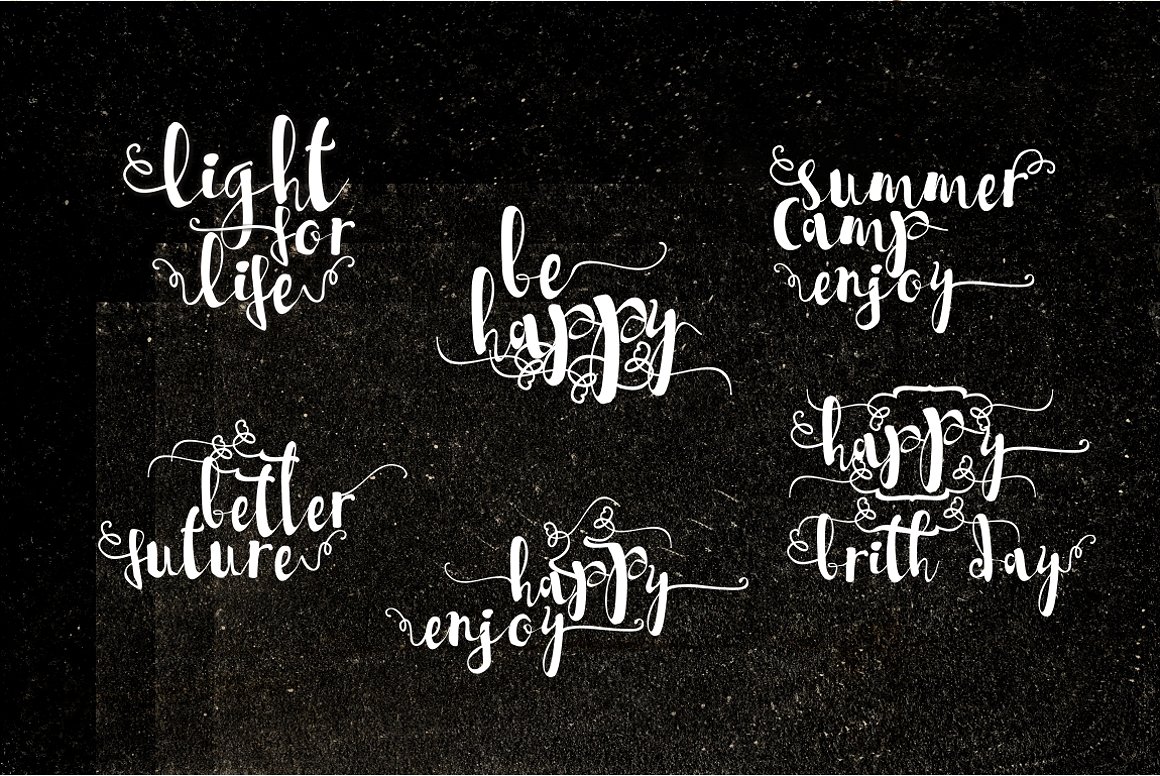 light
for
life
be
happy
summer
Camp
enjoy
better
future
happy
enjoy
happy
brith day